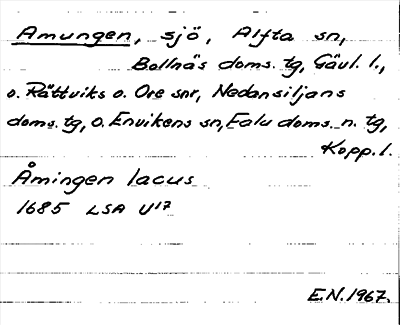 Amungen, sjö, Alfta sn,
Bollnäs doms. tg, Gävl. l.,
o. Rättviks o. Ore snr, Nedansiljans
doms. tg, o. Envikens sn, Falu doms. n. tg,
Kopp. l.
Åmingen lacus
1685 LSA U¹⁷
E.N. 1967.